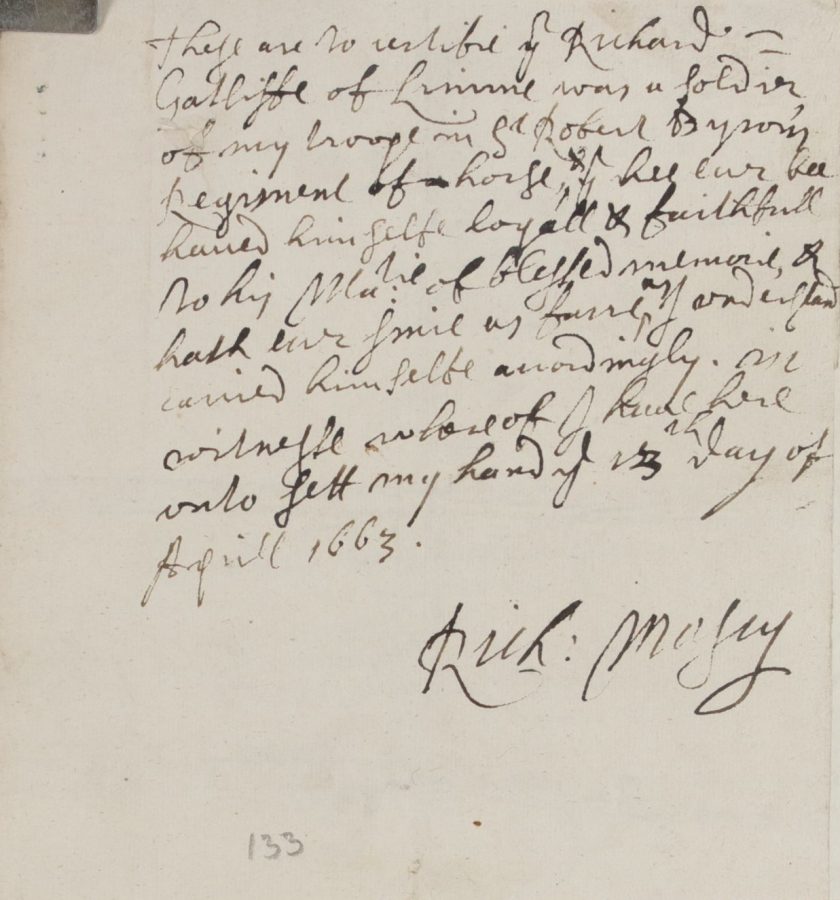 These are to certifie yt Richard =
Gatliffe of Limme was a soldier
of my troope in Sr Robert Byrons
Regiment of horse, & yt hee ever bee
haved himselfe loyall & faithfull
to his Matie: of blessed memorie, &
hath ever since as farre as I understand
carried himselfe accordingly. in
witnesse whereof I have here
unto sett my hand ye 13th day of
Aprill 1663.
Rich: Massy
133